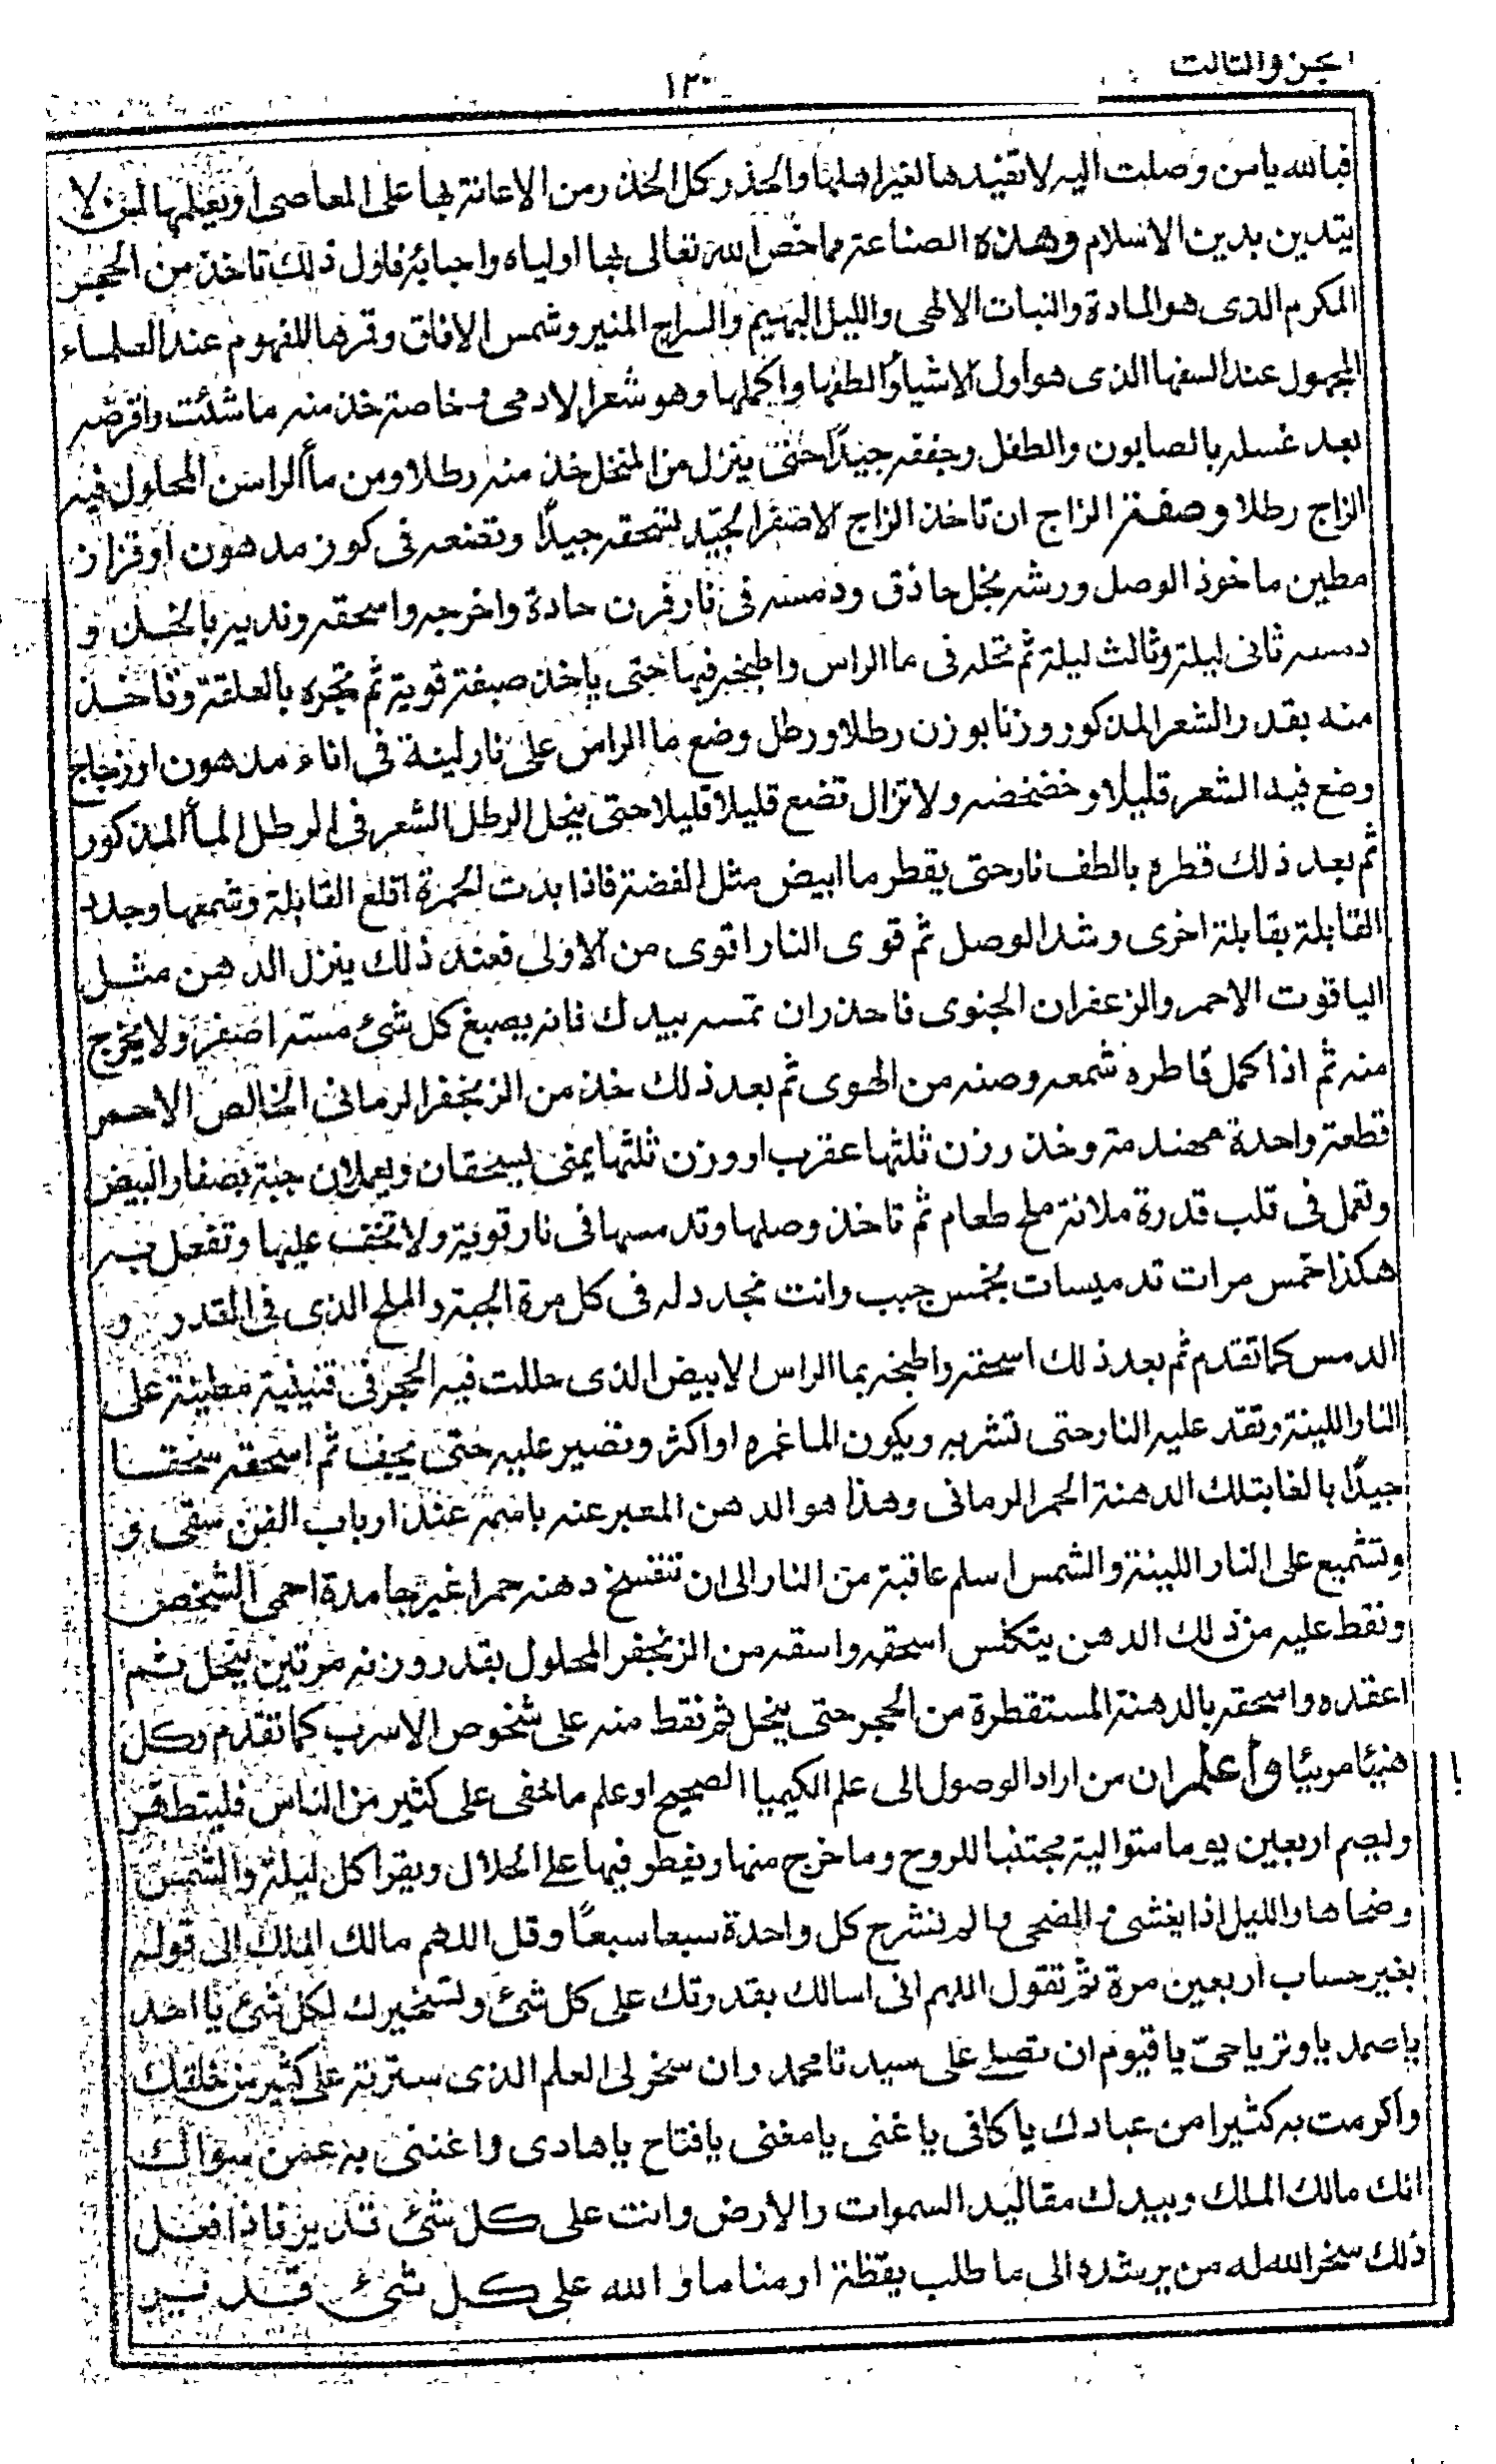 الجزء الثالث
١٣٠
فبالله يا من وصلت اليه لا تفيدها لغير اهلها والحذر كل الحذر ومن الاعانة بها على المعاصى او تعليمها لمن لا
يتدين بدين الاسلام وهذه الصناعة مما خص الله تعالى بها اولياه واحبائه فاول ذلك تاخذ من الحجر
المكرم الذى هو المادة والنبات الالهى والليل البهيم والسراج المنير وشمس الافاق وقمرها المفهوم عند العلماء
المجهول عند السفها الذى هو اول الاشيا والطفها واكملها وهو شعر الادمى خاصة خذ منه ما شئت واقرضه
بعد غسله بالصابون والطفل وجففه جيدًا حتى ينزل من المنخل خذ منه رطلا ومن ماء الراس المحلول فيه
الزاج رطلا وصفة الزاج ان تاخذ الزاج الاصفر الجيد لتسحقه جيدًا وتضعه فى كوز مدهون او قزاز
مطين ماخوذ الوصل ورشه بخل حاذق ودمسه فى نار فرن حادة واخرجه واسحقه ونديه بالخل و
دمسه ثانى ليلة وثالث ليلة ثم تحله فى ما الراس واطبخه فيها حتى ياخذ صبغة قوية ثم تجره بالعلقة وتاخذ
منه بقدر الشعر المذكور وزنا بوزن رطلا ورطل وضع ما الراس على نار لينة فى اناء مدهون او زجاج
وضع فيه الشعر قليلا وخضخضه ولا تزال تضع قليلا قليلا حتى ينحل الرطل الشعر فى الرطل الماء المذكور
ثم بعد ذلك قطره بالطف نار حتى يقطر ما ابيض مثل الفضة فاذا بدت الحمرة اقلع القابلة وشمعها وجدد
القابلة بقابلة اخرى وشد الوصل ثم قوى النار اقوى من الاولى فعند ذلك ينزل الدهن مثل
الياقوت الاحمر والزعفران الجنوى فاحذر ان تمسه بيدك فانه يصبغ كل شئ مسته اصفر ولا يخرج
منه ثم اذا كمل قاطره شمعه وصنه من الهوى ثم بعد ذلك خذ من الزنجفر الرمانى الخالص الاحمر
قطعة واحدة مهندمة وخذ وزن ثلثها عقرب او وزن ثلثها يمنى يسحقان ويعملان جبة بصفار البيض
وتعمل فى قلب قدرة ملانة ملح طعام ثم تاخذ وصلها وتدمسها فى نار قوية ولا تخف عليها وتفعل به
هكذا خمس مرات تدميسات بخمس جبب وانت تجدد له فى كل مرة الجبة والملح الذى فى القدر و
الدمس كما تقدم ثم بعد ذلك اسحقه واطبخه بما الراس الابيض الذى حللت فيه الحجر فى قنينية مطينة على
النار اللينة وتقد عليه النار حتى تشربه ويكون الما غمره او اكثر وتصبر عليه حتى يجف ثم اسحقه سحقا
جيدًا بالغا بتلك الدهنة الحمر الرمانى وهذا هو الدهن المعبر عنه باسمه عند ارباب الفن سقى و
وتشميع على النار اللينة والشمس اسلم عاقبة من النار الى ان تنفسخ دهنه حمرا غير جامدة احمى الشخص
ونقط عليه من ذلك الدهن يتكلس اسحقه واسقه من الزنجفر المحلول بقدر وزنه مرتين ينحل ثم
اعقده واسحقه بالدهنة المستقطرة من الحجر حتى ينحل ثم نقط منه على شخوص الاسرب كما تقدم وكل
هنيئا مريئا واعلم ان من اراد الوصول الى علم الكيميا الصحيح او علم ما خفى على كثير من الناس فليتطهر
وليصم اربعين يوما متوالية مجتنبا للروح وما خرج منها ويفطر فيها على الحلال ويقرا كل ليلة والشمس
وضحاها والليل اذا يغشى والضحى والم نشرح كل واحدة سبعا سبعًا وقل اللهم مالك الملك الى قوله
بغير حساب اربعين مرة ثم تقول اللهم انى اسالك بقدرتك على كل شئ وتسخيرك لكل شئ يا احد
يا صمد يا وتر يا حىّ يا قيوم ان تصلى على سيدنا محمد وان سخر لى العلم الذى سترته على كثير من خلقك
واكرمت به كثيرا من عبادك يا كافى يا غنى يا مغنى يا فتاح يا هادى واغننى به عمن سواك
انك مالك الملك وبيدك مقاليد السموات والارض وانت على كل شئ قدير فاذا فعل
ذلك سخر الله له من يرشده الى ما طلب يقظة او مناما والله على كل شئ قدير